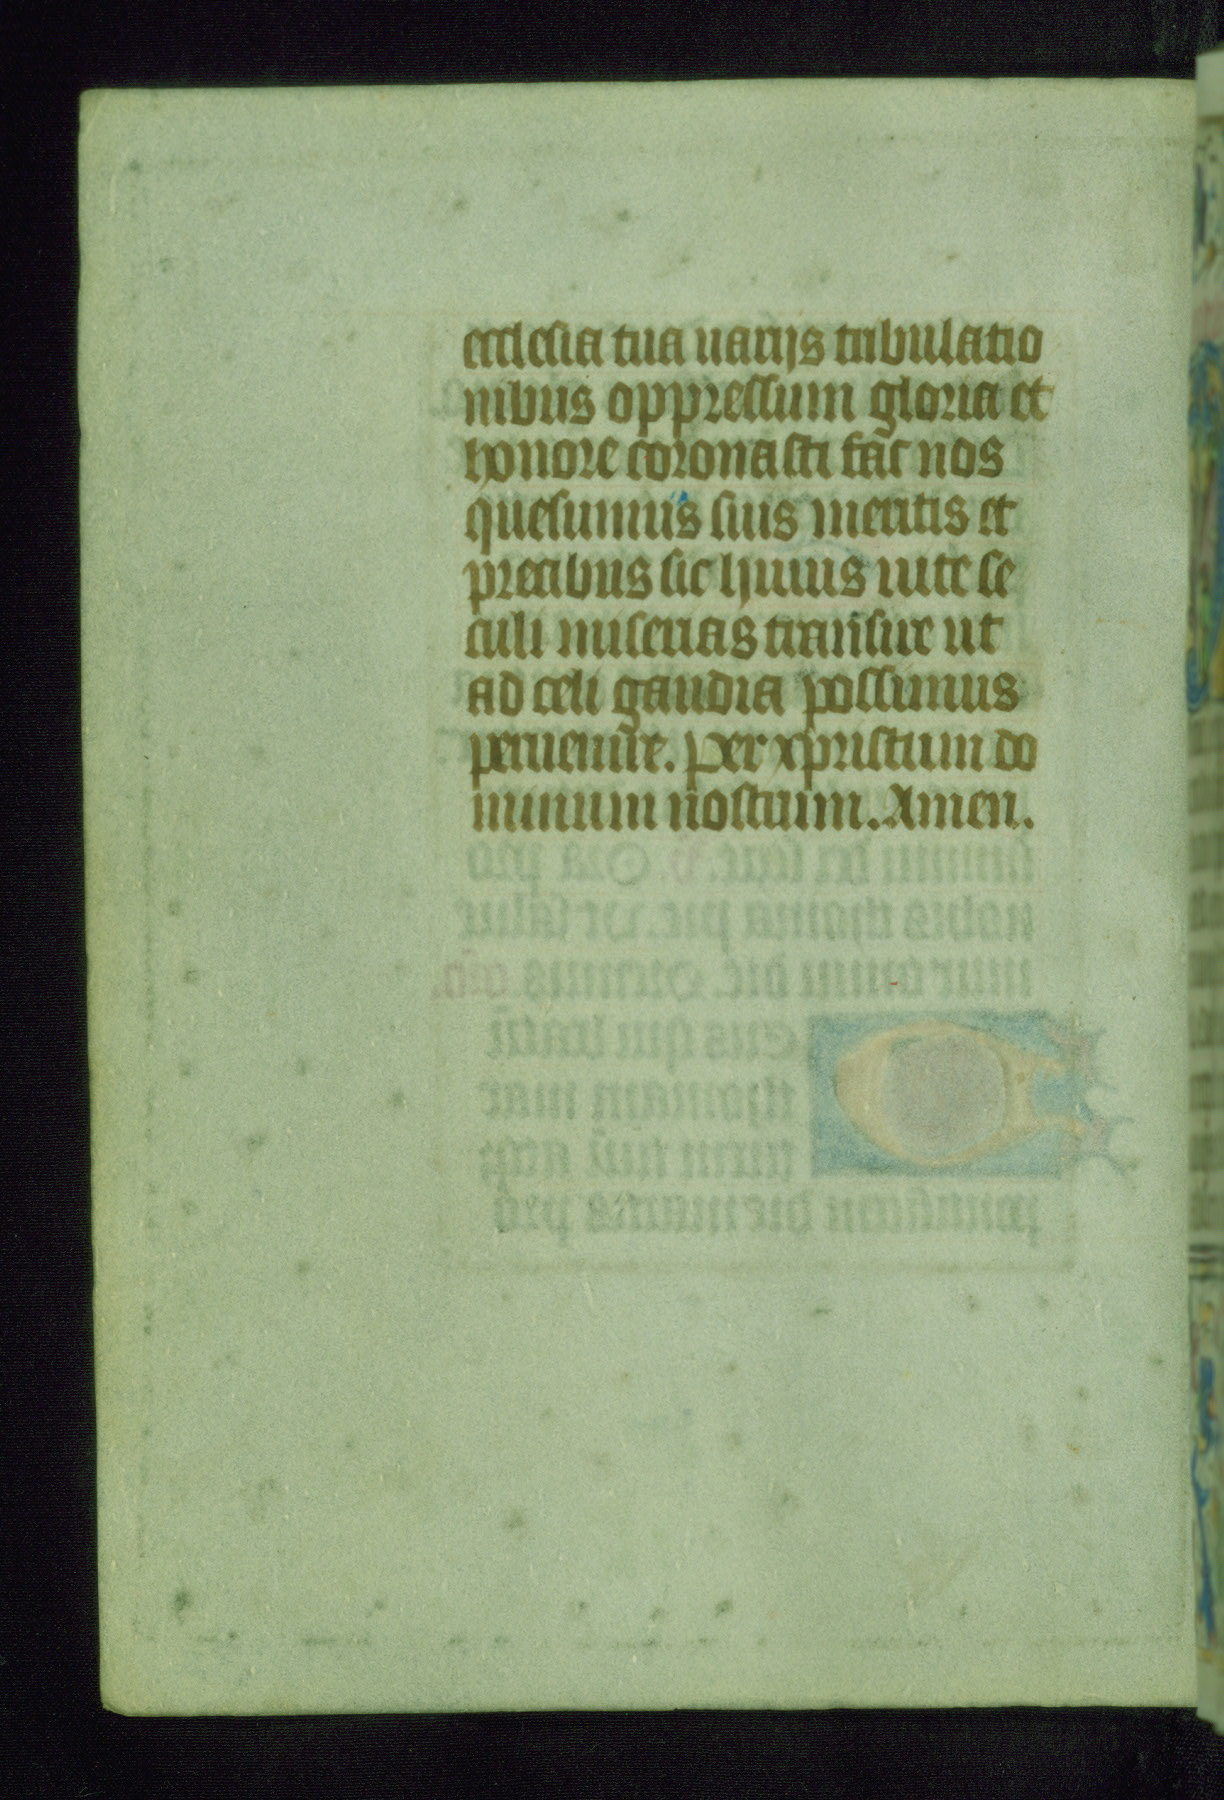 ecclesia tua uarijs tribulatio
nibus oppressum gloria et
honore coronasti fac nos
quesumus suis meritis et
precibus sic huius uite se
culi miserias transire ut
ad celi gaudia possimus
peruenire. Per xpristum do
minum nostrum. Amen.